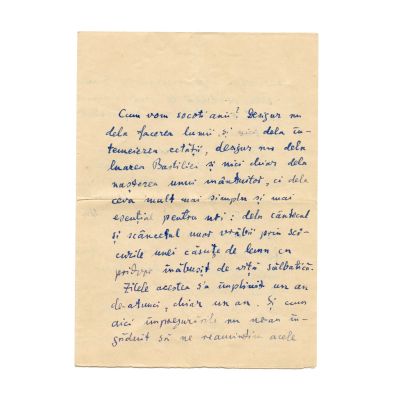 Cum vom socoti anii? Desigur nu
dela facerea lumii și nici dela în-
temeierea cetății, desigur nu dela
luarea Bastiliei și nici chiar dela
nașterea unui mântuitor, ci dela
ceva mult mai simplu și mai
esențial pentru noi: dela cântecul
și scâncetul unor vrăbii prin
unei căsuțe de lemn cu
pridvor înăbușit de viță sălbatică.
Zilele acestea s'a împlinit un an
de atunci, chiar un an. Și cum
aici împrejurările nu ne-au în-
găduit să ne reamintim acele